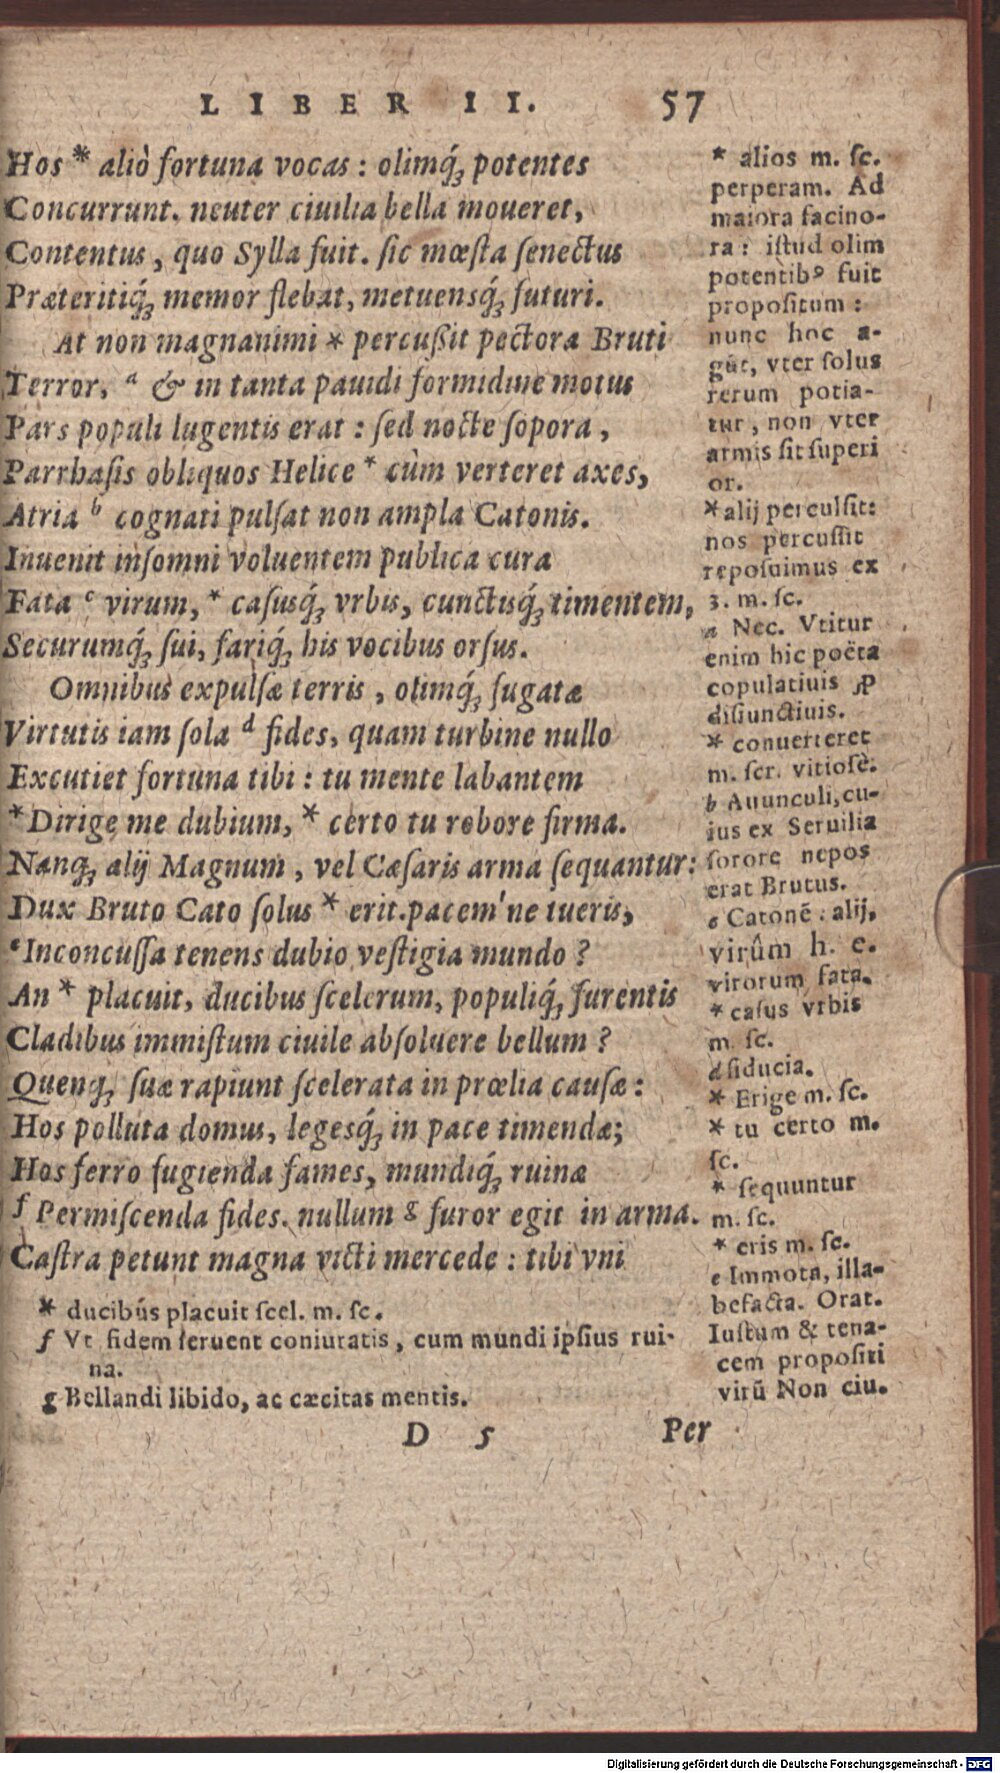 LIBER II. 57
Hos * aliò fortuna vocas : olimq́; potentes
Concurrunt. neuter ciuilia bella moueret,
Contentus, quo Sylla fuit. sic mœsta senectus
Præteritiq́; memor flebat, metuensq́; futuri.
At non magnanimi * percußit pectora Bruti
Terror, a & in tanta pauidi formidine motus
Pars populi lugentis erat : sed nocte sopora,
Parrhasis obliquos Helice * cùm verteret axes,
Atria b cognati pulsat non ampla Catonis.
Inuenit insomni voluentem publica cura
Fata c virum, * casusq́; vrbis, cunctisq́; timentem,
Securumq́; sui, fariq́; his vocibus orsus.
Omnibus expulsæ terris, olimq́; fugatæ
Virtutis iam sola d fides, quam turbine nullo
Excutiet fortuna tibi : tu mente labantem
*Dirige me dubium, * certo tu robore firma.
Nanq; alij Magnum, vel Cæsaris arma sequantur:
Dux Bruto Cato solus * erit. pacem'ne tueris,
e Inconcussa tenens dubio vestigia mundo ?
An * placuit, ducibus scelerum, populiq́; furentis
Cladibus immistum ciuile absoluere bellum ?
Quenq; suæ rapiunt scelerata in prœlia causæ :
Hos polluta domus, legesq́; in pace timendæ;
Hos ferro fugienda fames, mundiq́; ruinæ
f Permiscenda fides. nullum g furor egit in arma.
Castra petunt magna victi mercede : tibi vni
* ducibús placuit scel. m. sc.
f Vt fidem seruent coniuratis, cum mundi ipsius rui-
na.
g Bellandi libido, ac cæcitas mentis.
D 5 Per
* alios m. sc.
perperam. Ad
maiora facino-
ra : istud olim
potentib⁹ fuit
propositum :
nunc hoc a-
gūt, vter solus
rerum potia-
tur, non vter
armis sit superi
or.
* alij perculsit:
nos percussit
reposuimus ex
3. m. sc.
a Nec. Vtitur
enim hic poëta
copulatiuis ꝓ
disiunctiuis.
* conuerteret
m. scr. vitiosè.
b Auunculi, cu-
ius ex Seruilia
sorore nepos
erat Brutus.
c Catonē : alij,
virûm h. e.
virorum fata.
* casus vrbis
m. sc.
d fiducia.
* Erige m. sc.
* tu certo m.
sc.
* sequuntur
m. sc.
* eris m. sc.
e Immota, illa-
befacta. Orat.
Iustum & tena-
cem propositi
virū Non ciu.
Digitalisierung gefördert durch die Deutsche Forschungsgemeinschaft - DFG